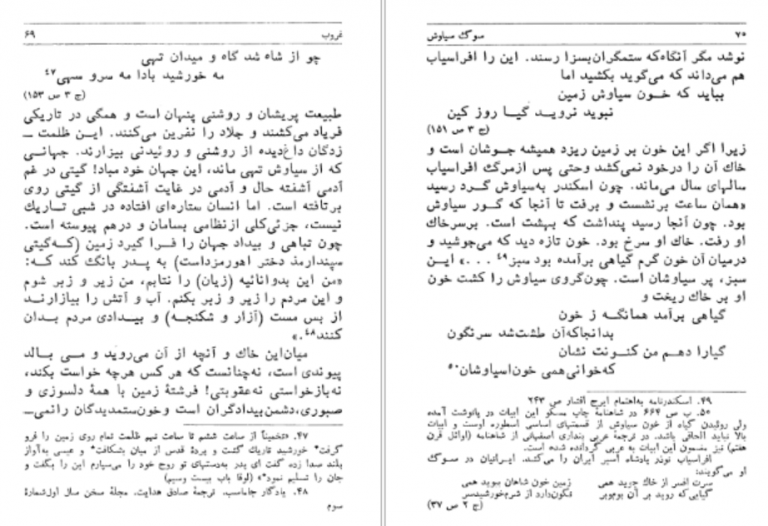 غروب
۶۹
چو از شاه شد گاه و میدان تهی
مه خورشید بادا مه سرو سهی۴۷
(ج ۳ ص ۱۵۳)
طبیعت پریشان و روشنی پنهان است و همگی در تاریکی
فریاد می‌کشند و جلاد را نفرین می‌کنند. این ظلمت ــ
زدگان داغ‌دیده از روشنی و روئیدنی بیزارند. جهانی
که از سیاوش تهی ماند، این جهان خود مباد! گیتی در غم
آدمی آشفته حال و آدمی در غایت آشفتگی از گیتی روی
برتافته است. اما انسان ستاره‌ای افتاده در شبی تاریک
نیست، جزئی‌کلی ازنظامی بسامان و درهم پیوسته است.
چون تباهی و بیداد جهان را فرا گیرد زمین (که‌گیتی
سپندارمذ دختر اهورمزداست) به پدر بانگ کند که:
«من این بدوانائیه (زیان) را نتابم، من زیر و زبر شوم
و این مردم را زیر و زبر بکنم. آب و آتش را بیازارند
از بس مست (آزار و شکنجه) و بیدادی مردم بدان
کنند۴۸.»
میان‌این خاک و آنچه از آن می‌روید و می بالد
پیوندی است، نه‌چنانست که هر کس هرچه خواست بکند،
نه‌بازخواستی نه‌عقوبتی! فرشتهٔ زمین با همهٔ دلسوزی و
صبوری،دشمن‌بیدادگران است وخون‌ستمدیدگان رانمی‌ــ
۴۷. «تخمیناً از ساعت ششم تا ساعت نهم ظلمت تمام روی زمین را فرو
گرفت* خورشید تاریک گشت و پردهٔ قدس از میان بشکافت* و عیسی به‌آواز
بلند صدا زده گفت ای پدر به‌دستهای تو روح خود را می‌سپارم این را بگفت و
جان را تسلیم نمود*» (لوقا باب بیست وسیم)
۴۸. یادگار جاماسب، ترجمهٔ صادق هدایت، مجلهٔ سخن سال اول‌شمارهٔ
سوم
۷۰
سوگ سیاوش
نوشد مگر آنگاه‌که ستمگران‌بسزا رسند. این را افراسیاب
هم می‌داند که می‌گوید بکشید اما
بباید که خون سیاوش زمین
نبوید نروید گیا روز کین
(ج ۳ ص ۱۵۱)
زیرا اگر این خون بر زمین ریزد همیشه جوشان است و
خاک آن را درخود نمی‌کشد وحتی پس ازمرگ افراسیاب
سالهای سال می‌ماند. چون اسکندر به‌سیاوش گرد رسید
«همان ساعت برنشست و برفت تا آنجا که گور سیاوش
بود. چون آنجا رسید پنداشت که بهشت است. برسرخاک
او رفت. خاک او سرخ بود. خون تازه دید که می‌جوشید و
درمیان آن خون گرم گیاهی برآمده بود سبز۴۹ ...» این
سبز، پر سیاوشان است. چون‌گروی سیاوش را کشت خون
او بر خاک ریخت و
گیاهی برآمد همانگه ز خون
بدانجاکه‌آن طشت‌شد سرنگون
گیارا دهم من کنونت نشان
که‌خوانی‌همی خون‌اسیاوشان۵۰
۴۹. اسکندرنامه به‌اهتمام ایرج افشار ص ۲۴۳
۵۰. ب ص ۶۶۴ در شاهنامهٔ چاپ مسکو این ابیات در پانوشت آمده
ولی روئیدن گیاه از خون سیاوش از قسمتهای اساسی اسطوره اوست و ابیات
بالا نباید الحاقی باشد. در ترجمهٔ عربی بنداری اصفهانی از شاهنامه (اوائل قرن
هفتم) نیز مضمون این ابیات به عربی گردانده شده است.
افراسیاب نوذر پادشاه اسیر ایران را می‌کشد. ایرانیان در سوگ
او می‌گویند:
سرت افسر از خاک جوید همی
زمین خون شاهان ببوید همی
گیایی‌که روید بر آن بوم‌وبر
نگون‌دارد از شرم‌خورشیدسر
(ج ۲ ص ۳۷)